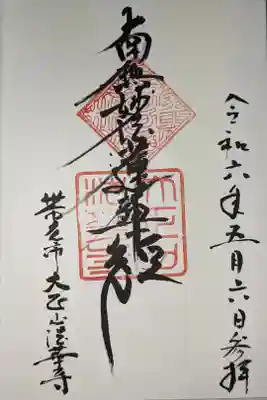 令和六年五月六日参拝
南無妙法蓮華経
帯広市 大正山法華寺